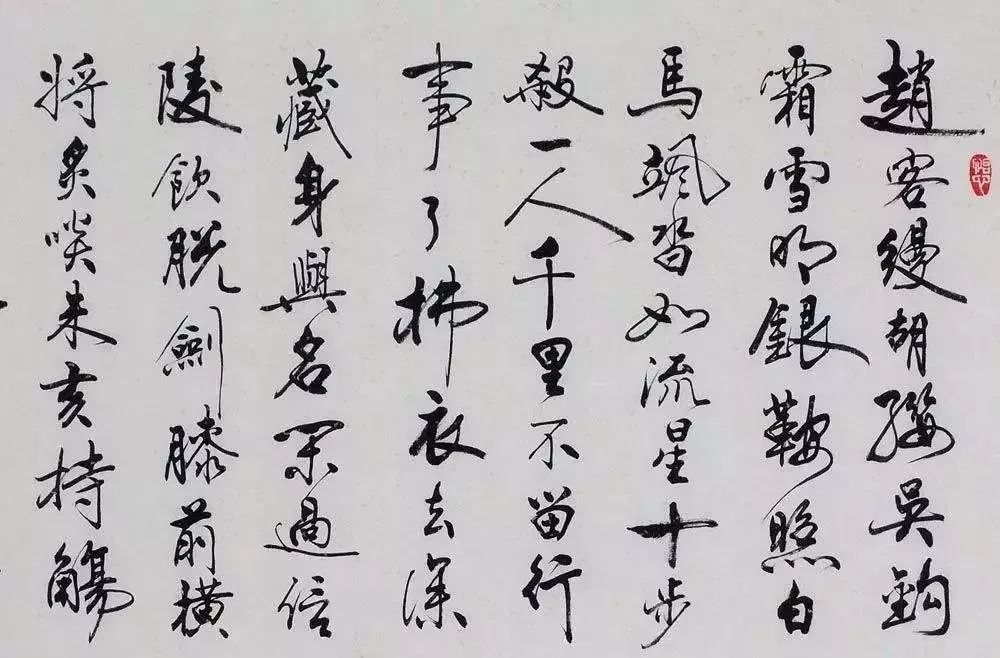 趙客縵胡纓吳鈎
霜雪明銀鞍照白
馬颯沓如流星十步
殺一人千里不留行
事了拂衣去深
藏身與名閑過信
陵飲脫劍膝前橫
將炙啖朱亥持觴